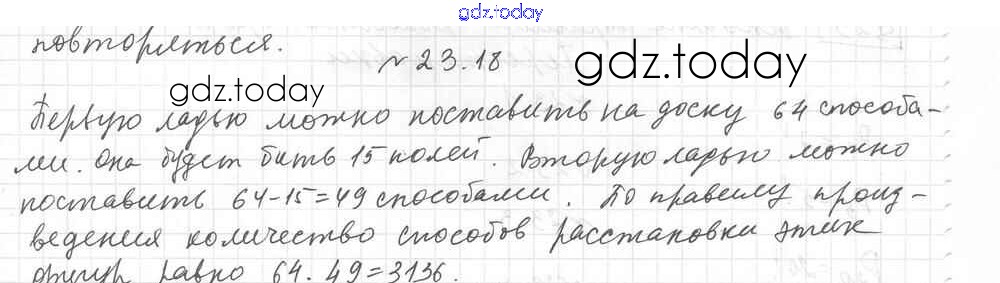 gdz.today
повторяться.
№ 23.18
gdz.today
gdz.today
Первую ладью можно поставить на доску 64 способа-
ми. Она будет бить 15 полей. Вторую ладью можно
поставить 64-15=49 способами. По правилу произ-
ведения количество способов расстановки этих
фигур равно 64·49=3136.